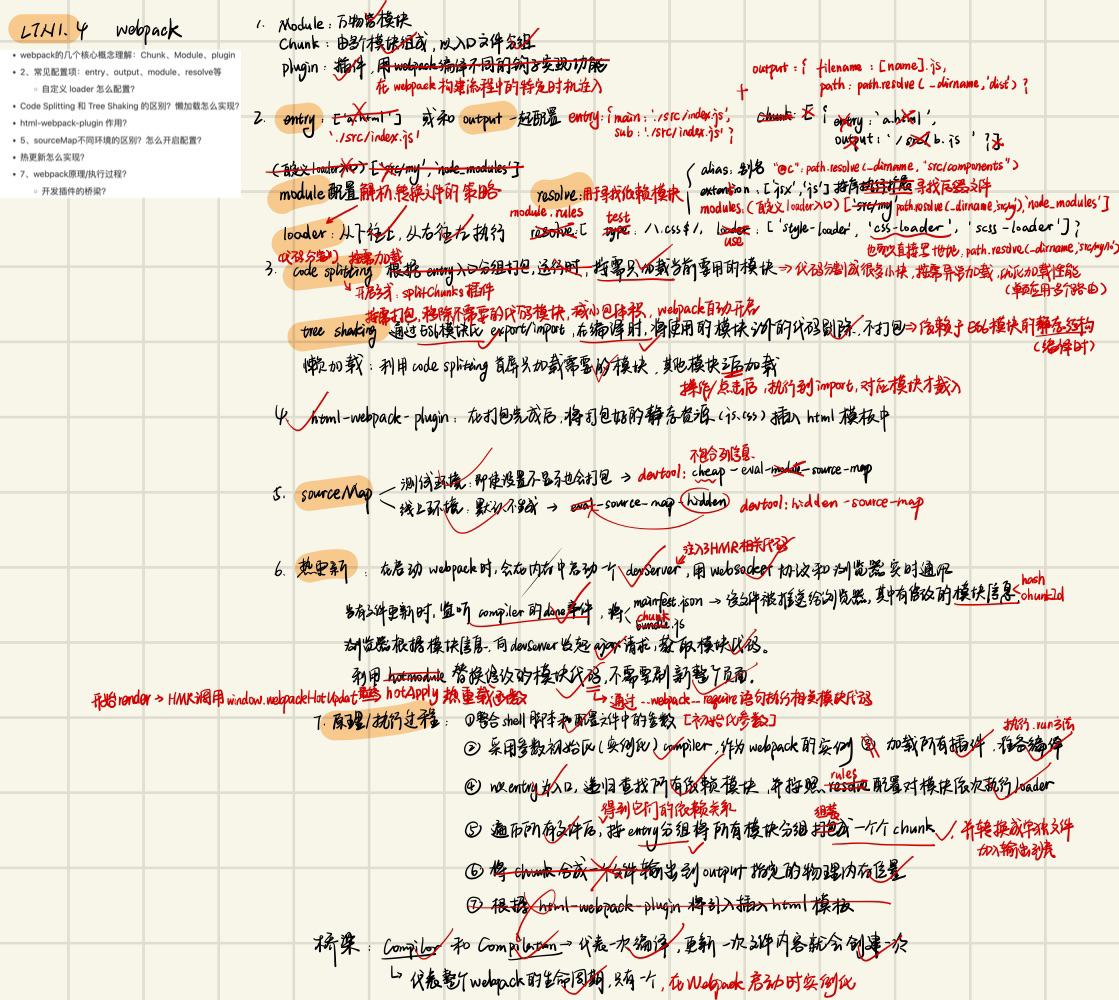 LTN1.4 webpack
• webpack的几个核心概念理解：Chunk、Module、plugin
• 2、常见配置项：entry、output、module、resolve等
○ 自定义 loader 怎么配置?
• Code Splitting 和 Tree Shaking 的区别？懒加载怎么实现?
• html-webpack-plugin 作用?
• 5、sourceMap不同环境的区别？怎么开启配置?
• 热更新怎么实现?
• 7、webpack原理/执行过程?
○ 开发插件的桥梁?
1. Module：万物皆模块
Chunk：由多个模块组成，以入口文件分组
plugin：插件，用webpack编译不同的钩子实现功能
在webpack构建流程中的特定时机注入
output：{ filename：[name].js,
path：path.resolve(_dirname,'dist') }
2. entry：['a.html'] 或和 output 一起配置 entry:{main：'./src/index.js'
'./src/index.js'
sub：'./src/index.js' }
chunk：[ { entry：'a.html',
output：'/src/b.js' }]
(自定义loader入口) ['src/my','node_modules']
module配置 解析转换文件的策略
resolve：用于寻找依赖模块
alias：别名 "@c"：path.resolve(_dirname, "src/components")
extention：['jsx','js'] 寻找后缀文件
modules.(自定义loader入口) ['src/my' path.resolve(_dirname,'src/my'),'node_modules']
loader：从下往上，从右往左执行
module.rules
resolve：[ test type：/\.css$/, loader use：['style-loader', 'css-loader', 'scss-loader']}
也可以直接写地址，path.resolve(_dirname,
(代码分割) 按需加载
3. code splitting 根据entry入口分组打包，还分时，按需只加载当前要用的模块 ⇒ 代码分割成很多小块，按需异步加载，优化加载性能
(单页应用多个路由)
开启方式：splitChunks插件
按需打包，移除不需要的代码模块，减小包体积，webpack自动开启
tree shaking 通过ES6模块化 export/import，在编译时，将使用的模块以外的代码剔除，不打包 ⇒ 依赖于ES6模块的静态结构
(编译时)
懒加载：利用code splitting 首屏只加载需要的模块，其他模块之后加载
操作/点击后，执行到import，对应模块才载入
4. html-webpack-plugin：在打包完成后，将打包好的静态资源(js.css)插入html模板中
不包含列信息
5. sourceMap 测试环境：即使设置不显示也会打包 → devtool：cheap-eval-module-source-map
线上环境：默认不生成 → eval-source-map-hidden devtool：hidden-source-map
注入了HMR相关代码
6. 热更新：在启动webpack时，会在内存中启动一个devServer，用websocker协议和浏览器实时通讯
当有文件更新时，监听compiler的done事件，将 mainfest.json → 该文件被推送给浏览器，其中有修改的模块信息 hash chunkId
chunk bundle.js
浏览器根据模块信息，向devServer发起ajax请求，获取模块代码。
利用 hotmodule 替换修改的模块代码，不需要刷新整个页面。
开始render → HMR调用window.webpackHotUpdate hotApply 热重载函数
→ 通过__webpack__require语句执行相关模块代码
7. 原理/执行过程：①整合shell脚本和配置文件中的参数 [初始化参数]
执行.run方法
② 采用参数初始化(实例化)compiler，作为webpack的实例 ③ 加载所有插件，准备编译
④ 以entry为入口，递归查找所有依赖模块，并按照 rules resolve 配置对模块依次执行loader
得到它们的依赖关系
⑤ 遍历所有文件后，按entry分组将所有模块分组 组装 打包成一个个chunk，并转换成单独文件
加入输出列表
⑥ 将chunk合成一个文件输出到output指定的物理内存位置
⑦ 根据html-webpack-plugin将引入插入html模板
桥梁：Compilor 和 Compilation → 代表一次编译，更新一次文件内容就会创建一次
↳ 代表整个webpack的生命周期，只有一个，在Webpack启动时实例化